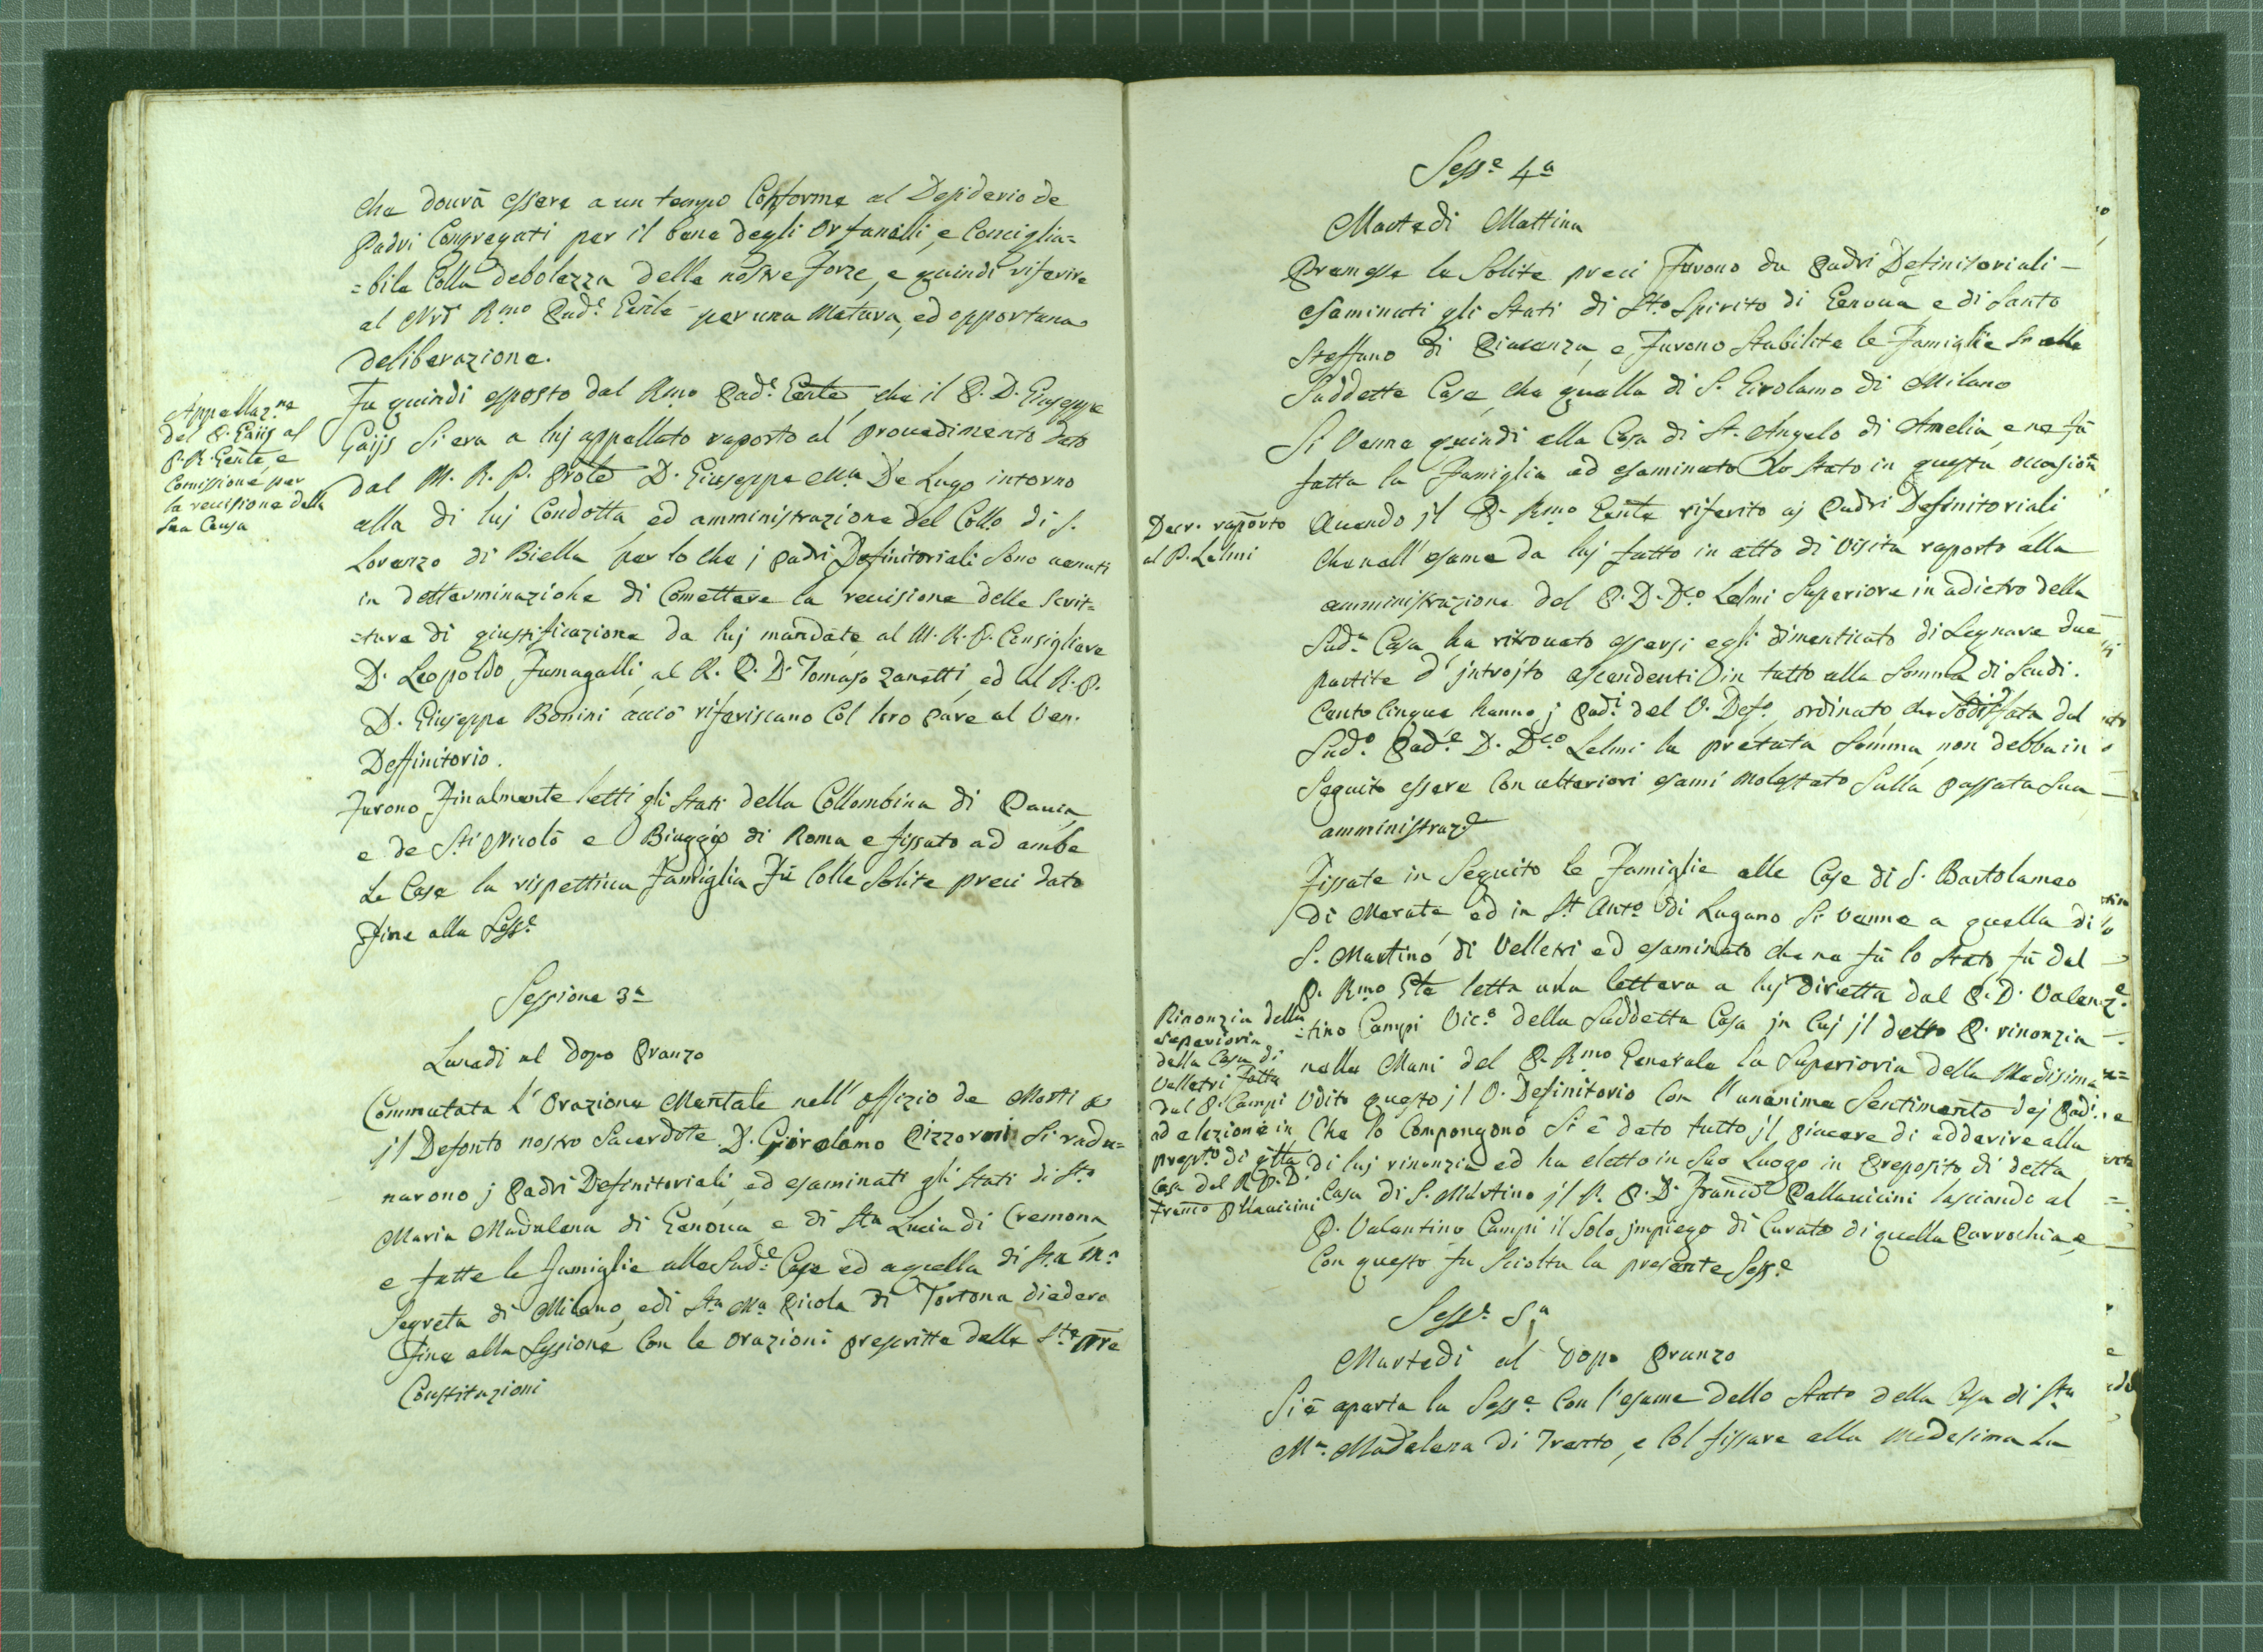 che dovrà essere a un tempo Conforme al Desiderio de
Padri Congregati per il bene degli Orfanelli, e Conciglia=
=bile Colla debolezza delle nostre Forze, e quindi riferire
al Nrõ Rmo Pad.e Gen̄le per una Matura, ed opportuna
deliberazione.
Appellaz.ne
del P. Gaijs al
P. R. Gen̄le, e
Comissione per
la revisione della
sua Causa
Fu quindi esposto dal Rmo Pad.e Gen̄le che il P. D. Giuseppe
Gaijs si era a luj appellato raporto al provedimento dato
dal M. R. P. Prōle D. Giuseppe M.a De Lugo intorno
alla di luj Condotta, ed amministrazione del Collo di S.
Lorenzo di Biella per lo che j Padri Definitoriali sono venuti
in determinazione di Comettere la revisione delle Scrit=
=ture di giustificazione da luj mandate al M. R. P. Consigliere
D. Leopoldo Fumagalli, al R. P. D. Tomaso Zanetti, ed al R. P.
D. Giuseppe Bonini acciò riferiscano Col loro pare al Ven.
Deffinitorio.
Furono Finalmente letti gli Stati della Collombina di Pavia,
e de S.ti Nicolò e Biaggio di Roma e fissato ad ambe
Le Case la rispettiva Famiglia Fù Colle Solite preci dato
Fine alla Sess.e
Sessione 3.a
Lunedì al Dopo Pranzo
Commutata l'Orazione Mentale nell'offizio de Morti p
jl Defonto nostro Sacerdote D. Girolamo Pizzorni si radu=
narono j Padri Definitoriali, ed esaminati gli Stati di S.ta
Maria Madalena di Genova, e di S.ta Lucia di Cremona,
e fatte le famiglie alle Sud.e Case ed a quella di S.ta M.a
Segreta di Milano, e di S.ta M.a Picola di Tortona diedero
Fine alla Sessione Con le Orazioni prescritte dalle S.te Nr̄e
Constituzioni
Sess.e 4.a
Martedì Mattina
Premesse le Solite preci Furono da Padri Definitoriali
esaminati gli Stati di S.to Spirito di Genova, e di Santo
Steffano di Piacenza, e Furono Stabilite le Famiglie sì alle
Suddette Case, che quella di S. Girolamo di Milano
Si Venne quindi alla Casa di St. Angelo di Amelia, e ne fù
fatta la Famiglia ed esaminato lo Stato in questa occasion
Decr. raporto
al P. Lelmi
Avendo jl P. Rmo Gen̄le riferito aj Padri Definitoriali
che nell'esame da luj fatto in atto di Visita raporto alla
amministrazione del P. D. D.co Lelmi Superiore in adietro della
Sud.a Casa ha ritrovato essersi egli dimenticato di Segnare due
partite d'jntrojto ascendenti in tutto alla Somma di Scudi
Cento Cinque hanno j Pad.i del V. Def.o ordinato, che Sodisfata dal
Sud.o Pad.e D. D.co Lelmi la prefata Somma, non debba in
Seguito essere Con ulteriori esami molestato Sulla passata Sua
amministraz.e
Fissate in Seguito le Famiglie alle Case di S. Bartolameo
di Merate, ed in S.t Ant.o di Lugano Si venne a quella di
S. Martino di Velletri ed esaminato che ne fù lo Stato fù dal
P. Rmo Gl̄e letta una lettera a luj diretta dal P. D. Valen
Rinonzia della
superioria
della Casa di
Velletri fatta
dal P. Campi
ad elezione in
prep.to di d.tta
Casa del R. P. D.
Franco Pllavicini
=tino Campi Vic.o della Suddetta Casa jn Cuj jl detto P. rinonzia
nelle Mani del P. Rmo Generale la Superioria della Medisima
Udito questo jl V. Definitorio Con l'unanime Sentimento dej Padi
Che lo Compongono Si è dato tutto jl piacere di adderire alla
di luj rinunzia ed ha eletto in Suo Luogo in Preposito di detta
Casa di S. Martino jl R. P. D. Franc̄o Pallavicini lasciando al
P. Valentino Campi il Solo jmpiego di Curato di quella Parrochia, e
Con questo fu Sciolta la presente Sess.e
Sess.e 5.a
Martedì al Dopo Pranzo
Si è aperta la Sess.e Con l'esame dello Stato della Casa di S.ta
M.a Madalena di Trento, e Col fissare alla Medesima La